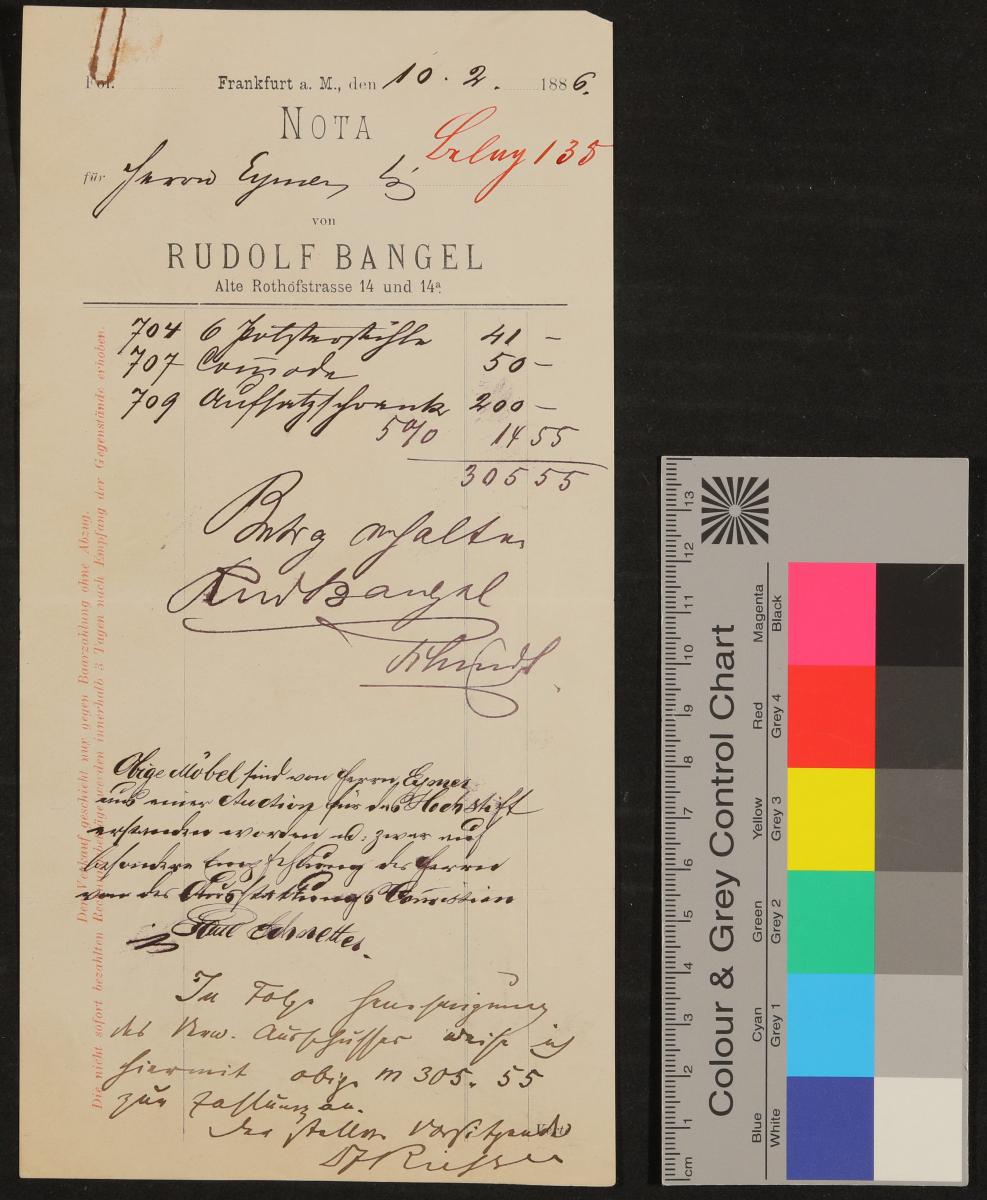 Fol.
Frankfurt a. M., den 10. 2. 1886.
NOTA
Beleg 135
für Herrn Eymer
von
RUDOLF BANGEL
Alte Rothofstrasse 14 und 14a.
704 6 Polsterstühle 41 –
707 Com̄ode 50 –
709 Aufsatzschrank 200 –
5% 14 55
305 55
Betrg erhalten
Rud Bangel
Schmidt
Obige Möbel sind von Herrn Eymer
aus einer Auction für das Hochstift
erstanden worden u. zwar auf
besondere Empfehlung des Herrn
von der Ausstattungs Com̄ission
Paul Schnetter.
In Folge Genehmigung
des Verw. Ausschusses weise ich
hiermit obige M 305. 55
zur Zahlung an.
Der stellv. Vorsitzende
Dr Riesser
Der Verkauf geschieht nur gegen Baarzahlung ohne Abzug.
Die nicht sofort bezahlten Rechnungsbeträge werden innerhalb 3 Tagen nach Empfang der Gegenstände erhoben.
Colour & Grey Control Chart
Blue Cyan Green Yellow Red Magenta
White Grey 1 Grey 2 Grey 3 Grey 4 Black
cm 1 2 3 4 5 6 7 8 9 10 11 12 13